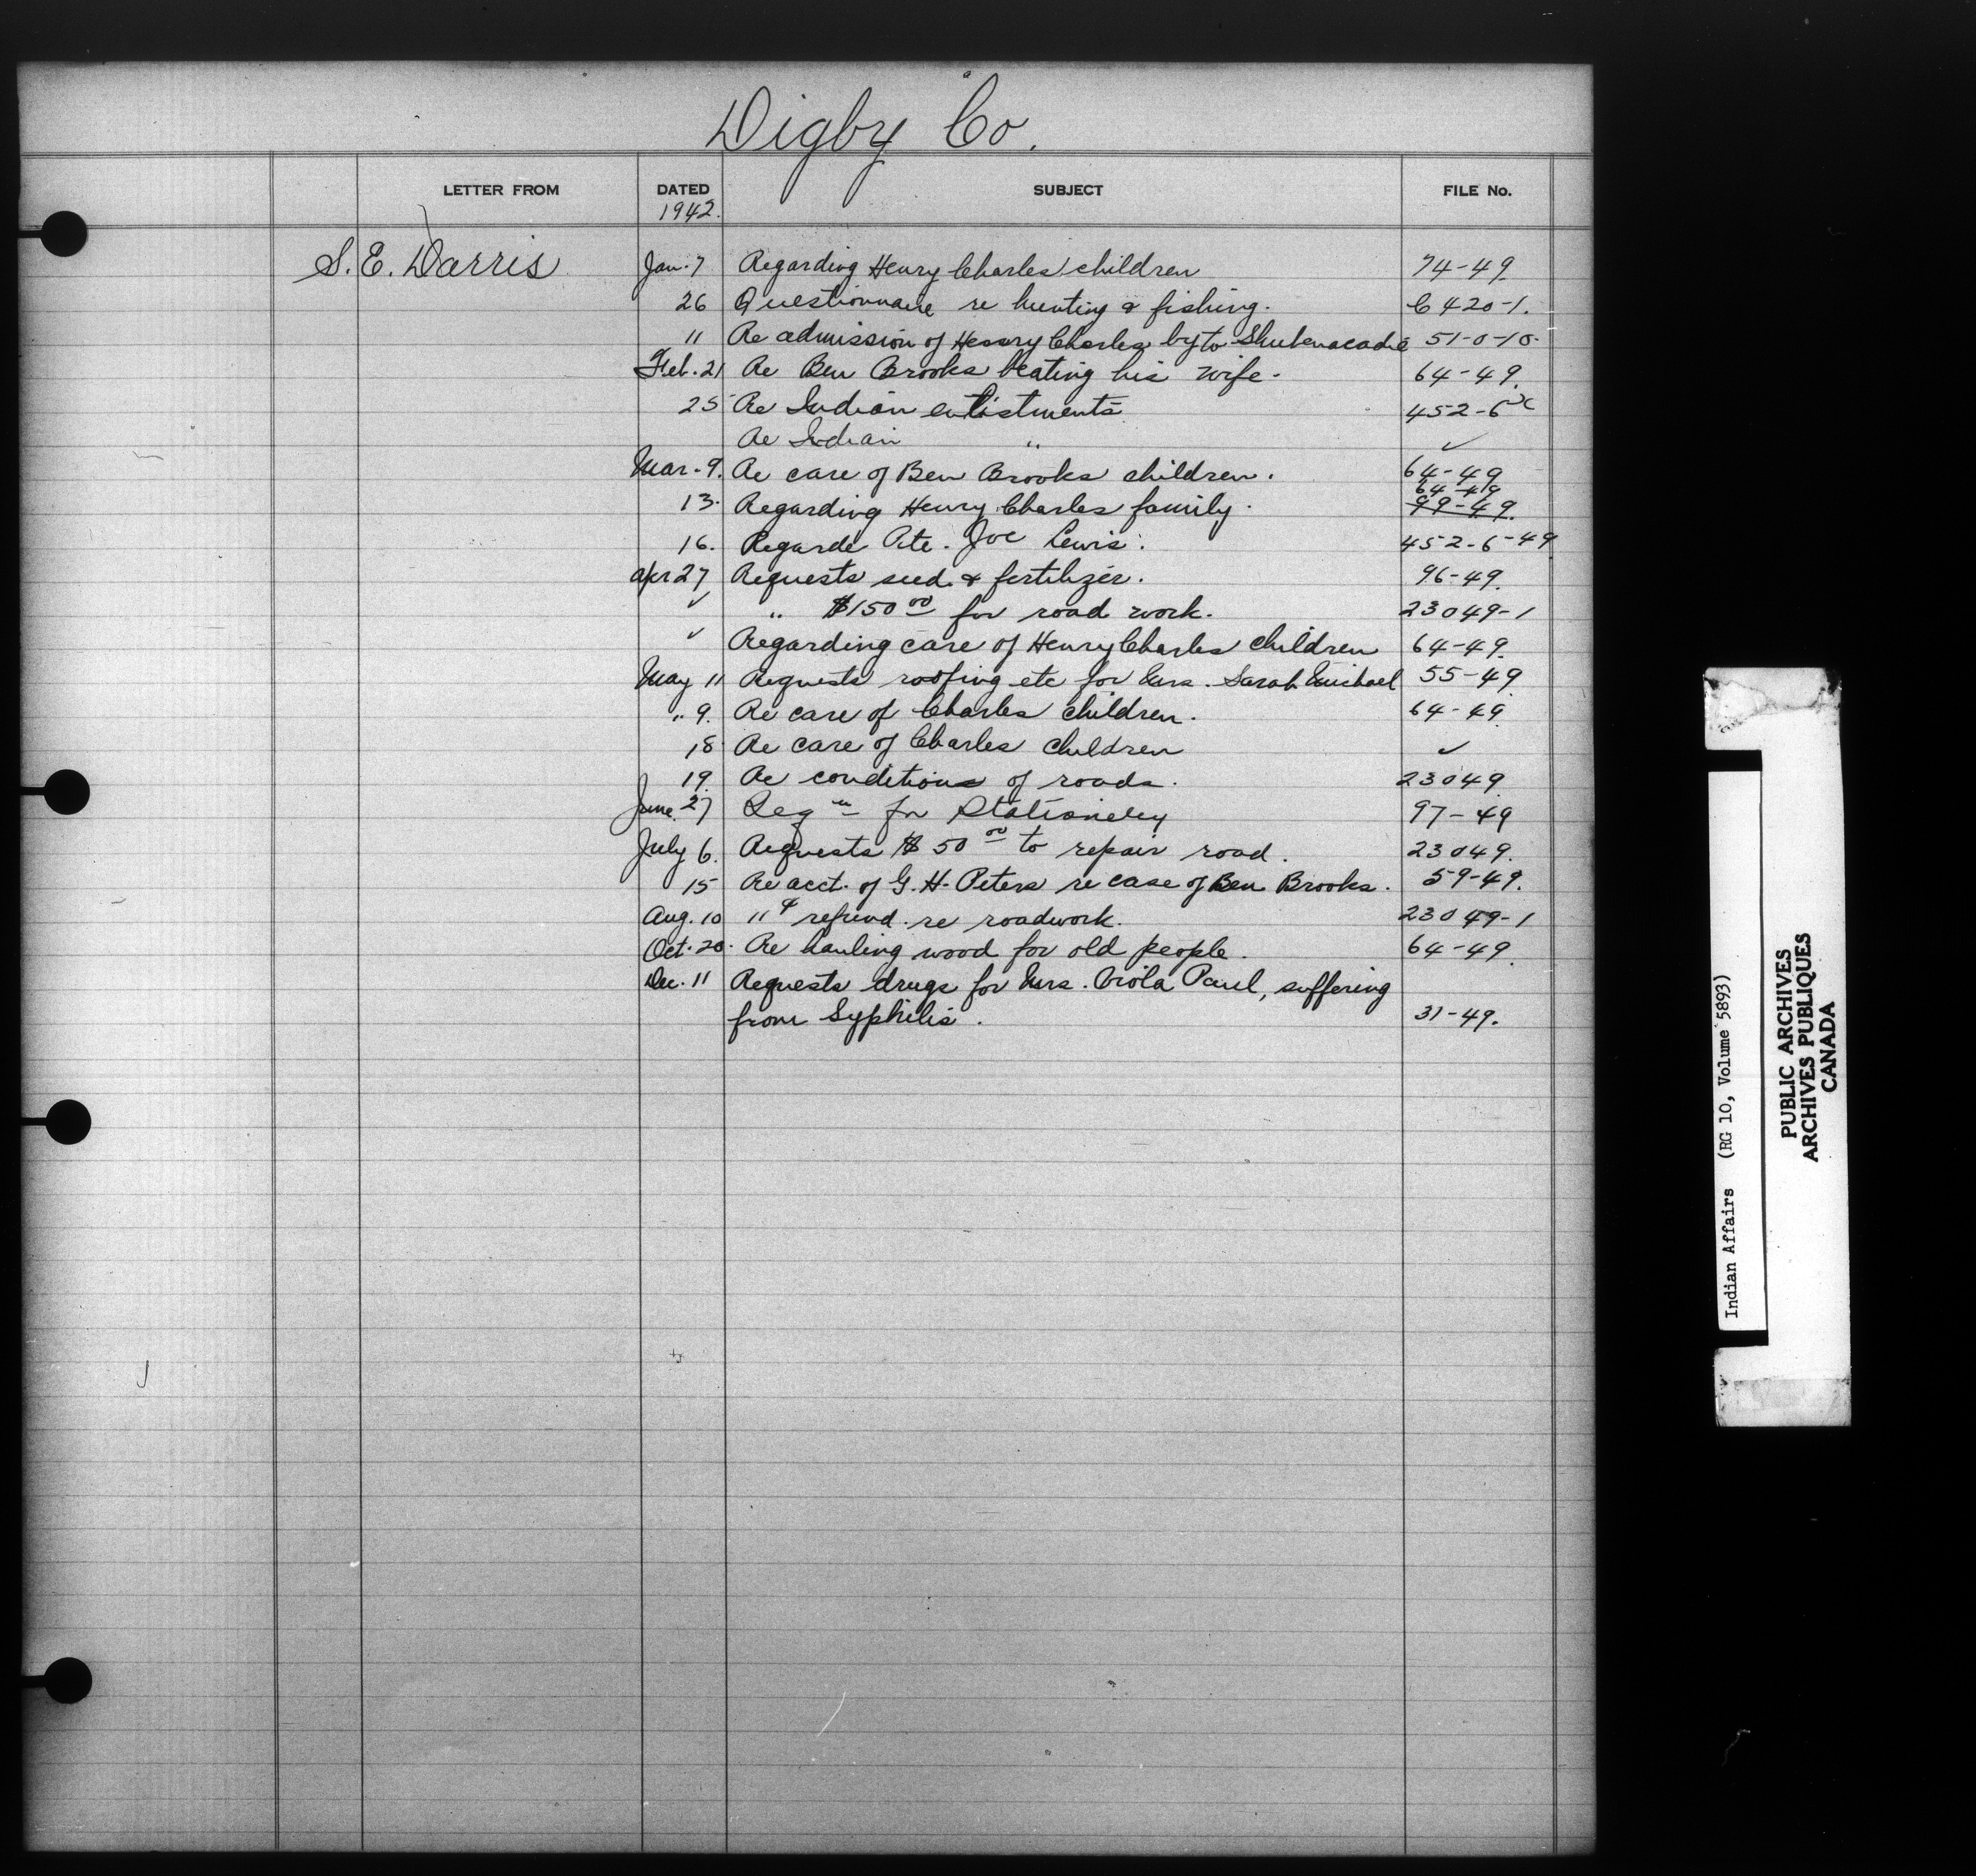 Digby Co.
LETTER FROM DATED SUBJECT FILE No.
1942.
S. E. Darris Jan. 7 Regarding Henry Charles children 74-49.
26 Questionnaire re hunting & fishing. C 420-1.
11 Re admission of Henry Charles by to Shubenacadie 51-0-10.
Feb. 21 Re Ben Brooks beating his wife. 64-49.
25 Re Indian enlistments 452-6
Re Indian " ✓
Mar. 9. Re care of Ben Brooks children. 64-49
64-49
13. Regarding Henry Charles family. 99-49.
16. Regarde Pte. Joe Lewis. 452-6-49
Apr 27 Requests seed & fertilizer. 96-49.
✓ " $150 00 for road work. 23049-1
✓ Regarding care of Henry Charles children 64-49.
May 11 Requests roofing etc for Mrs. Sarah Michael 55-49
" 9. Re care of Charles children. 64-49
18. Re care of Charles children ✓
19. Re conditions of roads. 23049.
June 27 Reqn for Stationery 97-49
July 6. Requests $50 00 to repair road. 23049.
15 Re acct. of G. H. Peters re case of Ben Brooks. 59-49.
Aug. 10 " & refund re roadwork. 23049-1
Oct. 20. Re hauling wood for old people. 64-49
Dec. 11 Requests drugs for Mrs. Viola Paul, suffering
from Syphilis. 31-49.
Indian Affairs (RG 10, Volume 5893)
PUBLIC ARCHIVES
ARCHIVES PUBLIQUES
CANADA